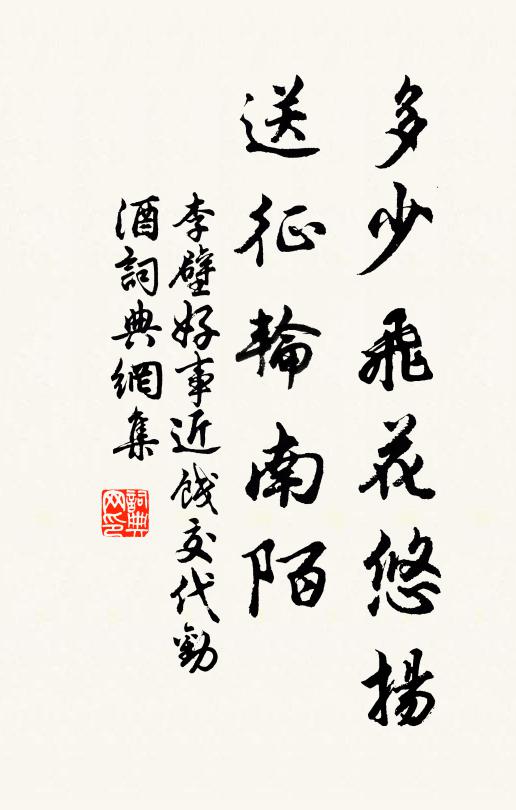 多少飛花悠揚
送征輪南陌
李壁好事近餞交代勸
酒詞典網集
詞典
网印